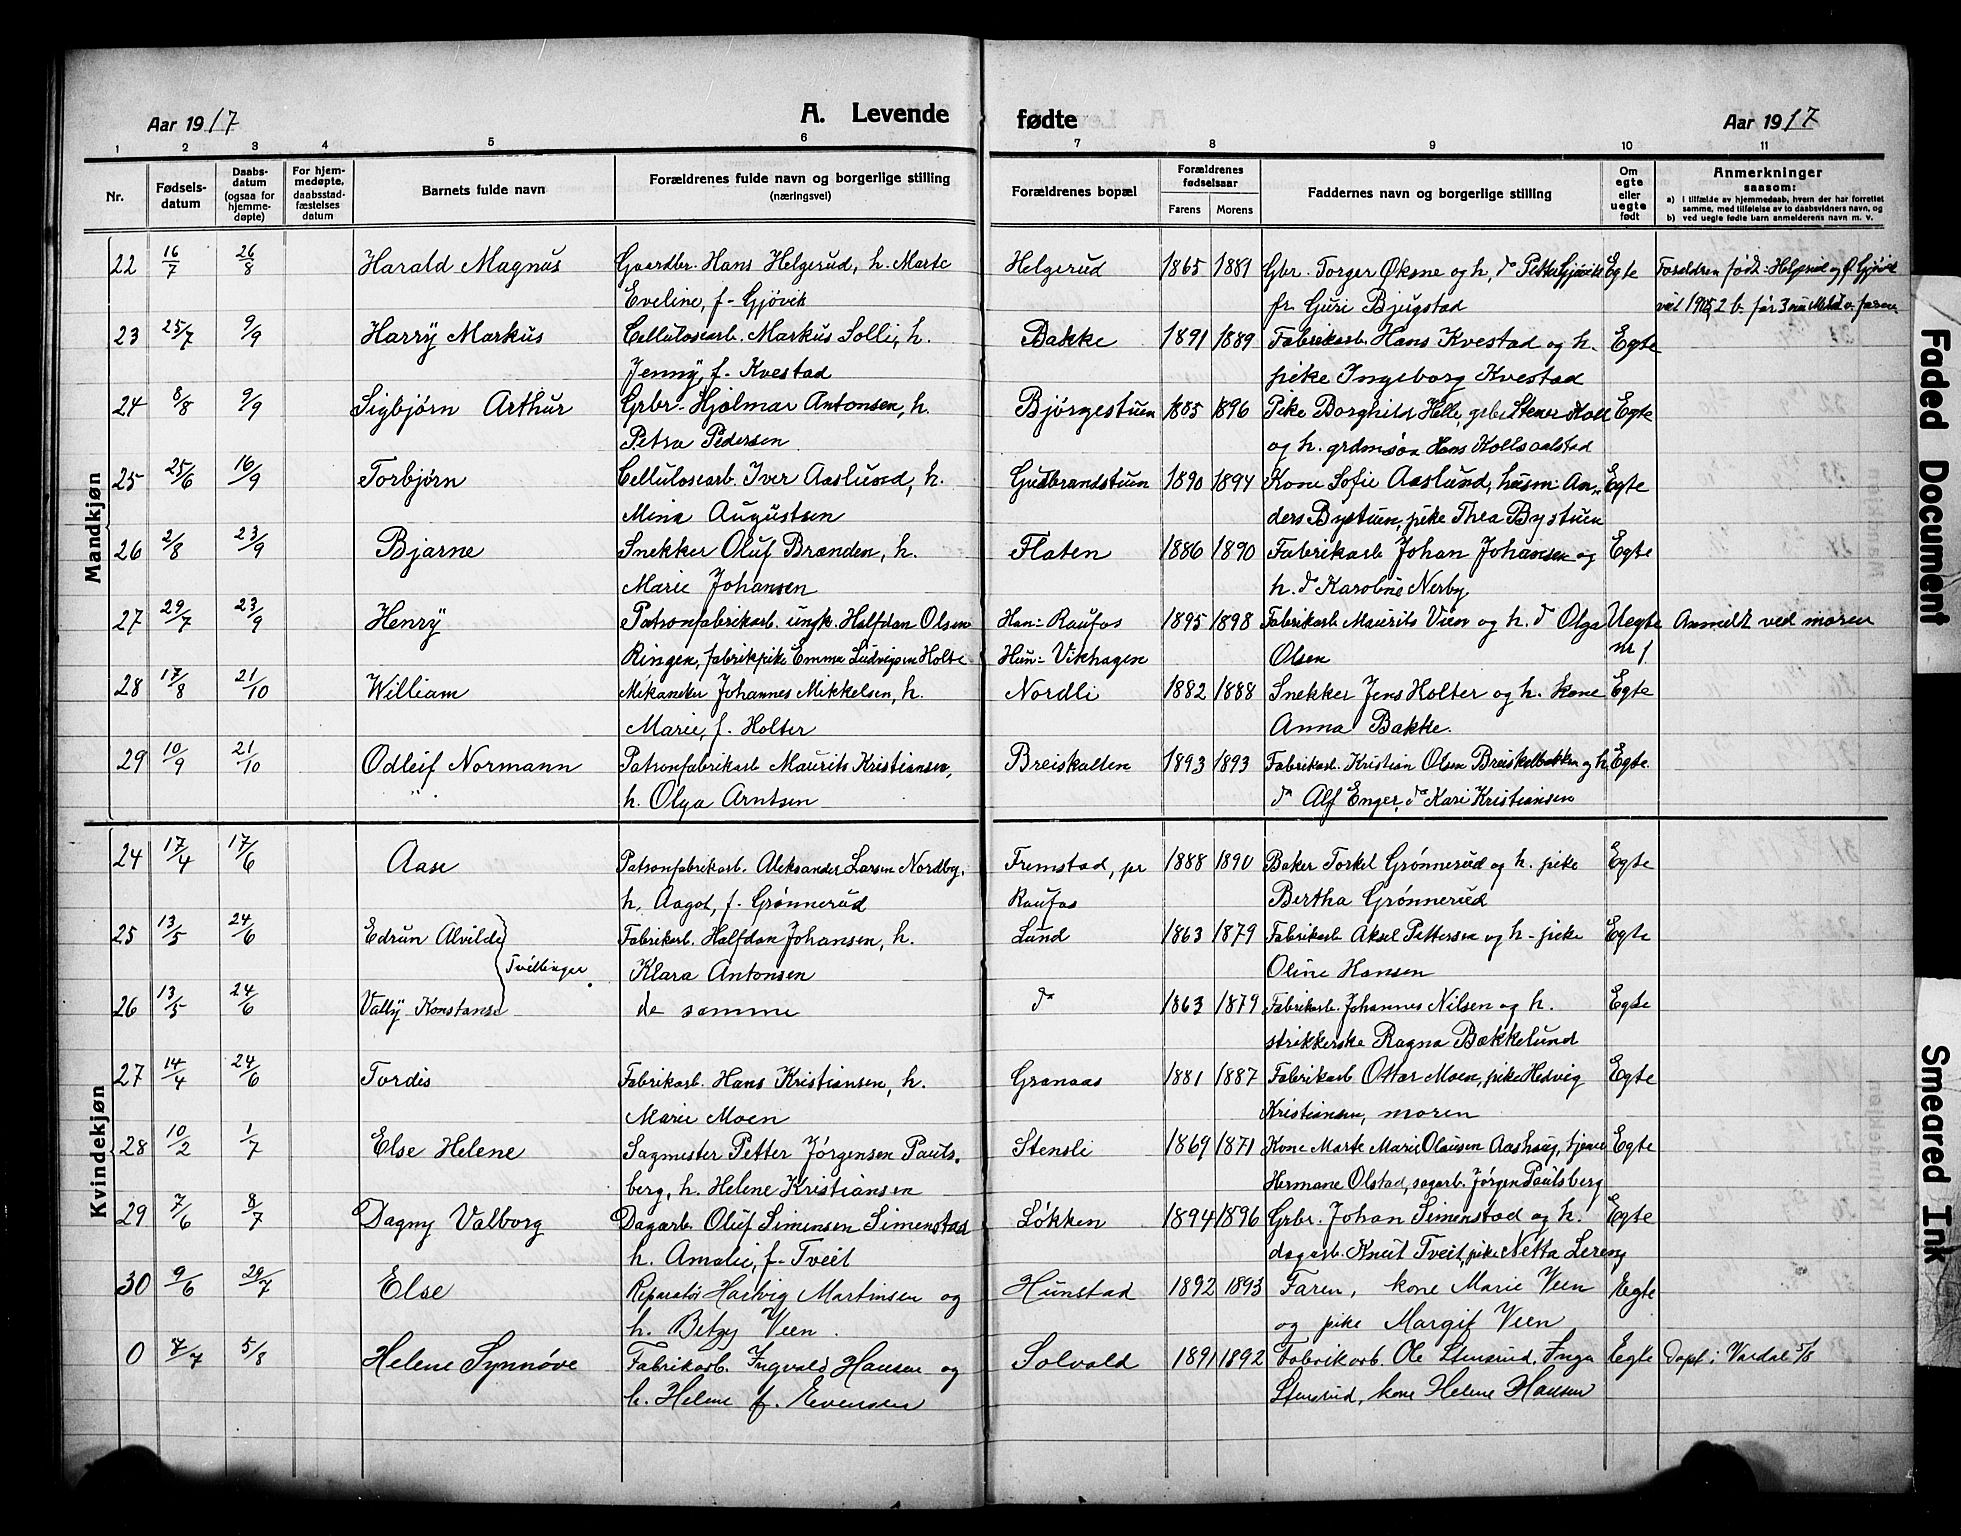 Aar 1917 A. Levende fødte Aar 1917
1 2 3 4 5 6 7 8 9 10 11
Nr. Fødsels-datum Daabs-datum (ogsaa for hjemme-døpte) For hjem-medøpte, daabsstad-fæstelses datum Barnets fulde navn Forældrenes fulde navn og borgerlige stilling (næringsvei) Forældrenes bopæl Forældrenes fødselsaar Farens Morens Faddernes navn og borgerlige stilling Om egte eller uegte født Anmerkninger saasom:
a) i tilfælde av hjemmedaab, hvem der har forrettet samme, med tilføielse av to daabsvidners navn, og
b) ved uegte fødte barn anmelderens navn m. v.
Mandkjøn
22 16/7 26/8 Harald Magnus Gaardbr. Hans Helgerud, h. Marte Helgerud 1865 1881 Gbr. Torger Øksne og h, do Petter Gjøvik Egte Forældren født: Helgerud og Ø Gjøvik
Eveline, f. Gjøvik fr. Guri Bjugstad
23 25/7 9/9 Harry Markus Cellulosearb. Markus Solli, h. Bakke 1891 1889 Fabrikarb. Hans Kvestad og h. Egte
Jenny, f. Kvestad pike Ingeborg Kvestad
24 8/8 9/9 Sigbjørn Arthur Grbr. Hjalmar Antonsen, h. Bjørgestuen 1885 1896 Pike Borghild Helle, grbr Stener Egte
Petra Pedersen og h. grdmsøn Hans Kollsaalstad
25 25/6 16/9 Torbjørn Cellulosearb. Iver Aaslund, h. Gudbrandstuen 1890 1894 Kone Sofie Aaslund, husm. An- Egte
Mina Augustsen ders Bystuen, pike Thea Bystuen
26 2/8 23/9 Bjarne Snekker Oluf Brænden, h. Flaten 1886 1890 Fabrikarb Johan Johansen og Egte
Marie Johansen h. do Karoline Nerby
27 29/7 23/9 Henry Patronfabrikarb. ungk. Halfdan Olsen Han: Raufos 1895 1898 Fabrikarb Maurits Vien og h. do Olga Uegte Anmeldt ved moren
Ringen, fabrikpike Emma Ludvigsen Holte Hun: Vikhagen Olsen nr 1
28 17/8 21/10 William Mekaniker Johannes Mikkelsen, h. Nordli 1882 1888 Snekker Jens Holter og h. kone Egte
Marie, f. Holter Anna Bakke.
29 10/9 21/10 Odleif Normann Patronfabrikarb Maurits Kristiansen, Breiskallen 1893 1893 Fabrikarb. Kristian Olsen Breiskelbakken og h Egte
h. Olga Arntsen do Alf Enger, do Kari Kristiansen
Kvindekjøn
24 17/4 17/6 Aase Patronfabrikarb. Aleksander Larsen Nordby, Fremstad, pr 1888 1890 Baker Torkel Grønnerud og h. pike Egte
h. Aagot, f. Grønnerud Raufos Bertha Grønnerud
25 13/5 24/6 Edrun Alvilde Fabrikarb. Halfdan Johansen, h. Lund 1863 1879 Fabrikarb Aksel Pettersen og h. pike Egte
Tvillinger. Klara Antonsen Oline Hansen
26 13/5 24/6 Vally Konstanse de samme do 1863 1879 Fabrikarb. Johannes Nilsen og h. Egte
strikkerske Ragna Bækkelund
27 14/4 24/6 Tordis Fabrikarb. Hans Kristiansen, h. Granaas 1881 1887 Fabrikarb Ottar Moen, pike Hedvig Egte
Marie Moen Kristiansen, moren
28 10/2 1/7 Else Helene Sagmester Petter Jørgensen Pauls- Stensli 1869 1871 Kone Marte Marie Olausen Aashaug, tjener Egte
berg, h. Helene Kristiansen Hermane Olstad, sagarb. Jørgen Paulsberg
29 7/6 8/7 Dagny Valborg Dagarb. Oluf Simensen Simenstad Løkken 1894 1896 Grbr. Johan Simenstad og h. Egte
h. Amalie, f. Tveit dagarb. Knut Tveit, pike Netta Lereng
30 9/6 29/7 Else Reparatør Harvig Martinsen og Hunstad 1892 1893 Faren, kone Marie Veen Egte
h. Betzy Veen. og pike Margit Veen
0 7/7 5/8 Helene Synnøve Fabrikarb. Ingvald Hansen og Solvold 1891 1892 Fabrikarb Ole Stensrud, Inga Egte Døpt i Vardal 5/8
h. Helene f. Evensen Stensrud, kone Helene Hansen
Faded Document
Smeared Ink